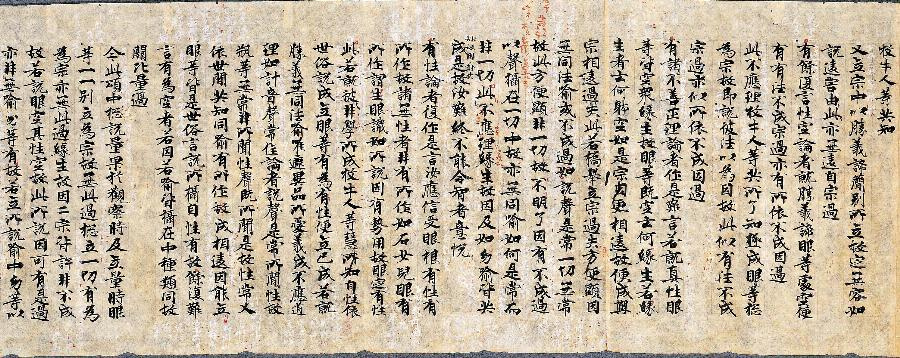 牧牛人等共知
又立宗中以勝義諦簡別所立故宗無容如
說違害由此亦無違自宗過
有餘復言性空論者就勝義諦眼等處空便
有有法不成宗過亦有所依不成因過
此不應理牧牛人等共所了知極成眼等總
為宗故即說彼法以為因故此似有法不成
宗過亦似所依不成因過
有諸不善正理論者作是難言若就真性眼
等皆空眾緣生故眼等既空云何緣生若緣
生者云何體空如是宗因更相違故便成與
宗相違過失此若矯舉立宗過失方便顯因
無同法喻或不成過如說聲是常一切無常
故此方便顯非一切故不明了因有不成過
以聲攝在一切中故亦無同喻如何是常而
非一切此不應理緣生故因及如幻喻皆共
成是故汝難終不能令智者意悅
有性論者復作是言汝應信受眼根有性有
所作故諸無性者非有所作如石女兒眼有
所作謂生眼識如所說因有勢用故眼定有性
此若就彼非學所成牧牛人等慧所知自性依
世俗說成立眼等有為有性便立已成若就
勝義無同法喻唯遮異品所愛義成不應道
理如計音聲常住論者說聲是常所聞性故
瓶等無常非所聞性聲既所聞是故性常又
依世間共知同喻有所作故成相違因能立
眼等皆是世俗言說所攝自性有故餘復難
言有為空者若因若喻攝在中種類同故
闕比量過
今此頌中總說量果於觀察時及立量時眼
等一一別立為宗故無此過總立一切有為
為宗亦無此過緣生故因二宗皆許非不成
故若說眼空其性空故此所說因可有是過
亦非無喻幻等有故若立所說喻中幻等以